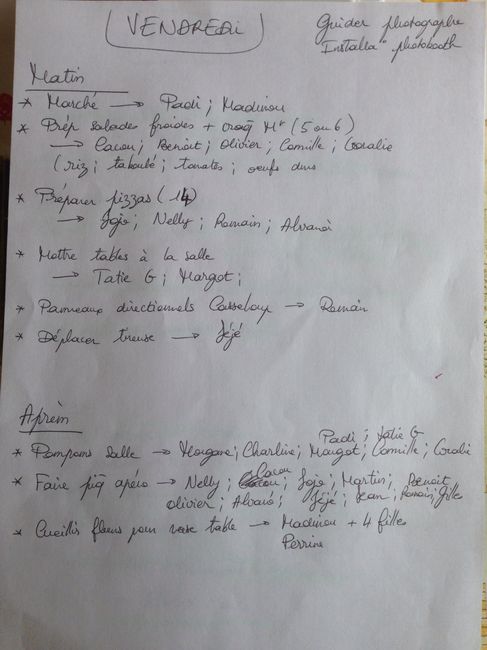 VENDREDI
Guider photographe
Installa° photobooth
Matin
* Marché → Padi ; Madinou
* Prép salades froides + croq Mr (5 ou 6)
→ Cacou ; Benoît ; Olivier ; Camille ; Coralie
(riz ; taboulé ; tomates ; oeufs durs
* Préparer pizzas (14)
→ Jojo ; Nelly ; Romain ; Alvaro
* Mettre tables à la salle
→ Tatie G ; Margot ;
* Panneaux directionnels → Romain
* Déplacer → Jéjé
Aprèm
Padi ; Tatie G
* Pompons salle → Morgane ; Charline ; Margot ; Camille ; Coralie
Cacou
* Faire piq apéro → Nelly ; Jojo ; Martin ; Benoit
Olivier ; Alvaro ; Jéjé ; Jean ; Romain ; Gilles
* Cueillir fleurs pour vase table → Madinou + 4 filles
Perrine